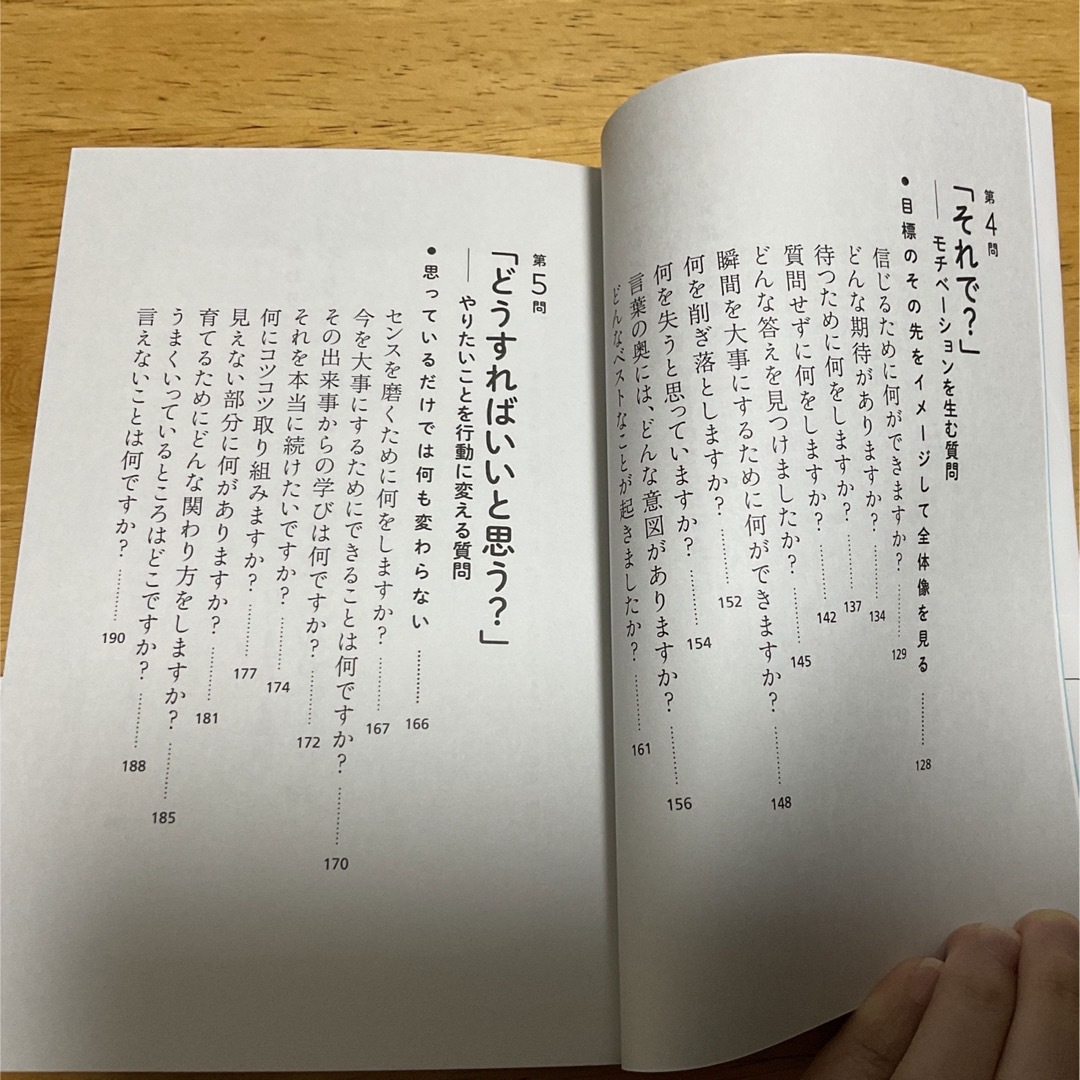 第4問
「それで？」
── モチベーションを生む質問
● 目標のその先をイメージして全体像を見る ………… 128
信じるために何ができますか？ ………… 129
どんな期待がありますか？ ………… 134
待つために何をしますか？ ………… 137
質問せずに何をしますか？ ………… 142
どんな答えを見つけましたか？ ………… 145
瞬間を大事にするために何ができますか？ ………… 148
何を削ぎ落としますか？ ………… 152
何を失うと思っていますか？ ………… 154
言葉の奥には、どんな意図がありますか？ ………… 156
どんなベストなことが起きましたか？ ………… 161
第5問
「どうすればいいと思う？」
── やりたいことを行動に変える質問
● 思っているだけでは何も変わらない ………… 166
センスを磨くために何をしますか？ ………… 167
今を大事にするためにできることは何ですか？ ………… 170
その出来事からの学びは何ですか？ ………… 172
それを本当に続けたいですか？ ………… 174
何にコツコツ取り組みますか？ ………… 177
見えない部分に何がありますか？ ………… 181
育てるためにどんな関わり方をしますか？ ………… 185
うまくいっているところはどこですか？ ………… 188
言えないことは何ですか？ ………… 190